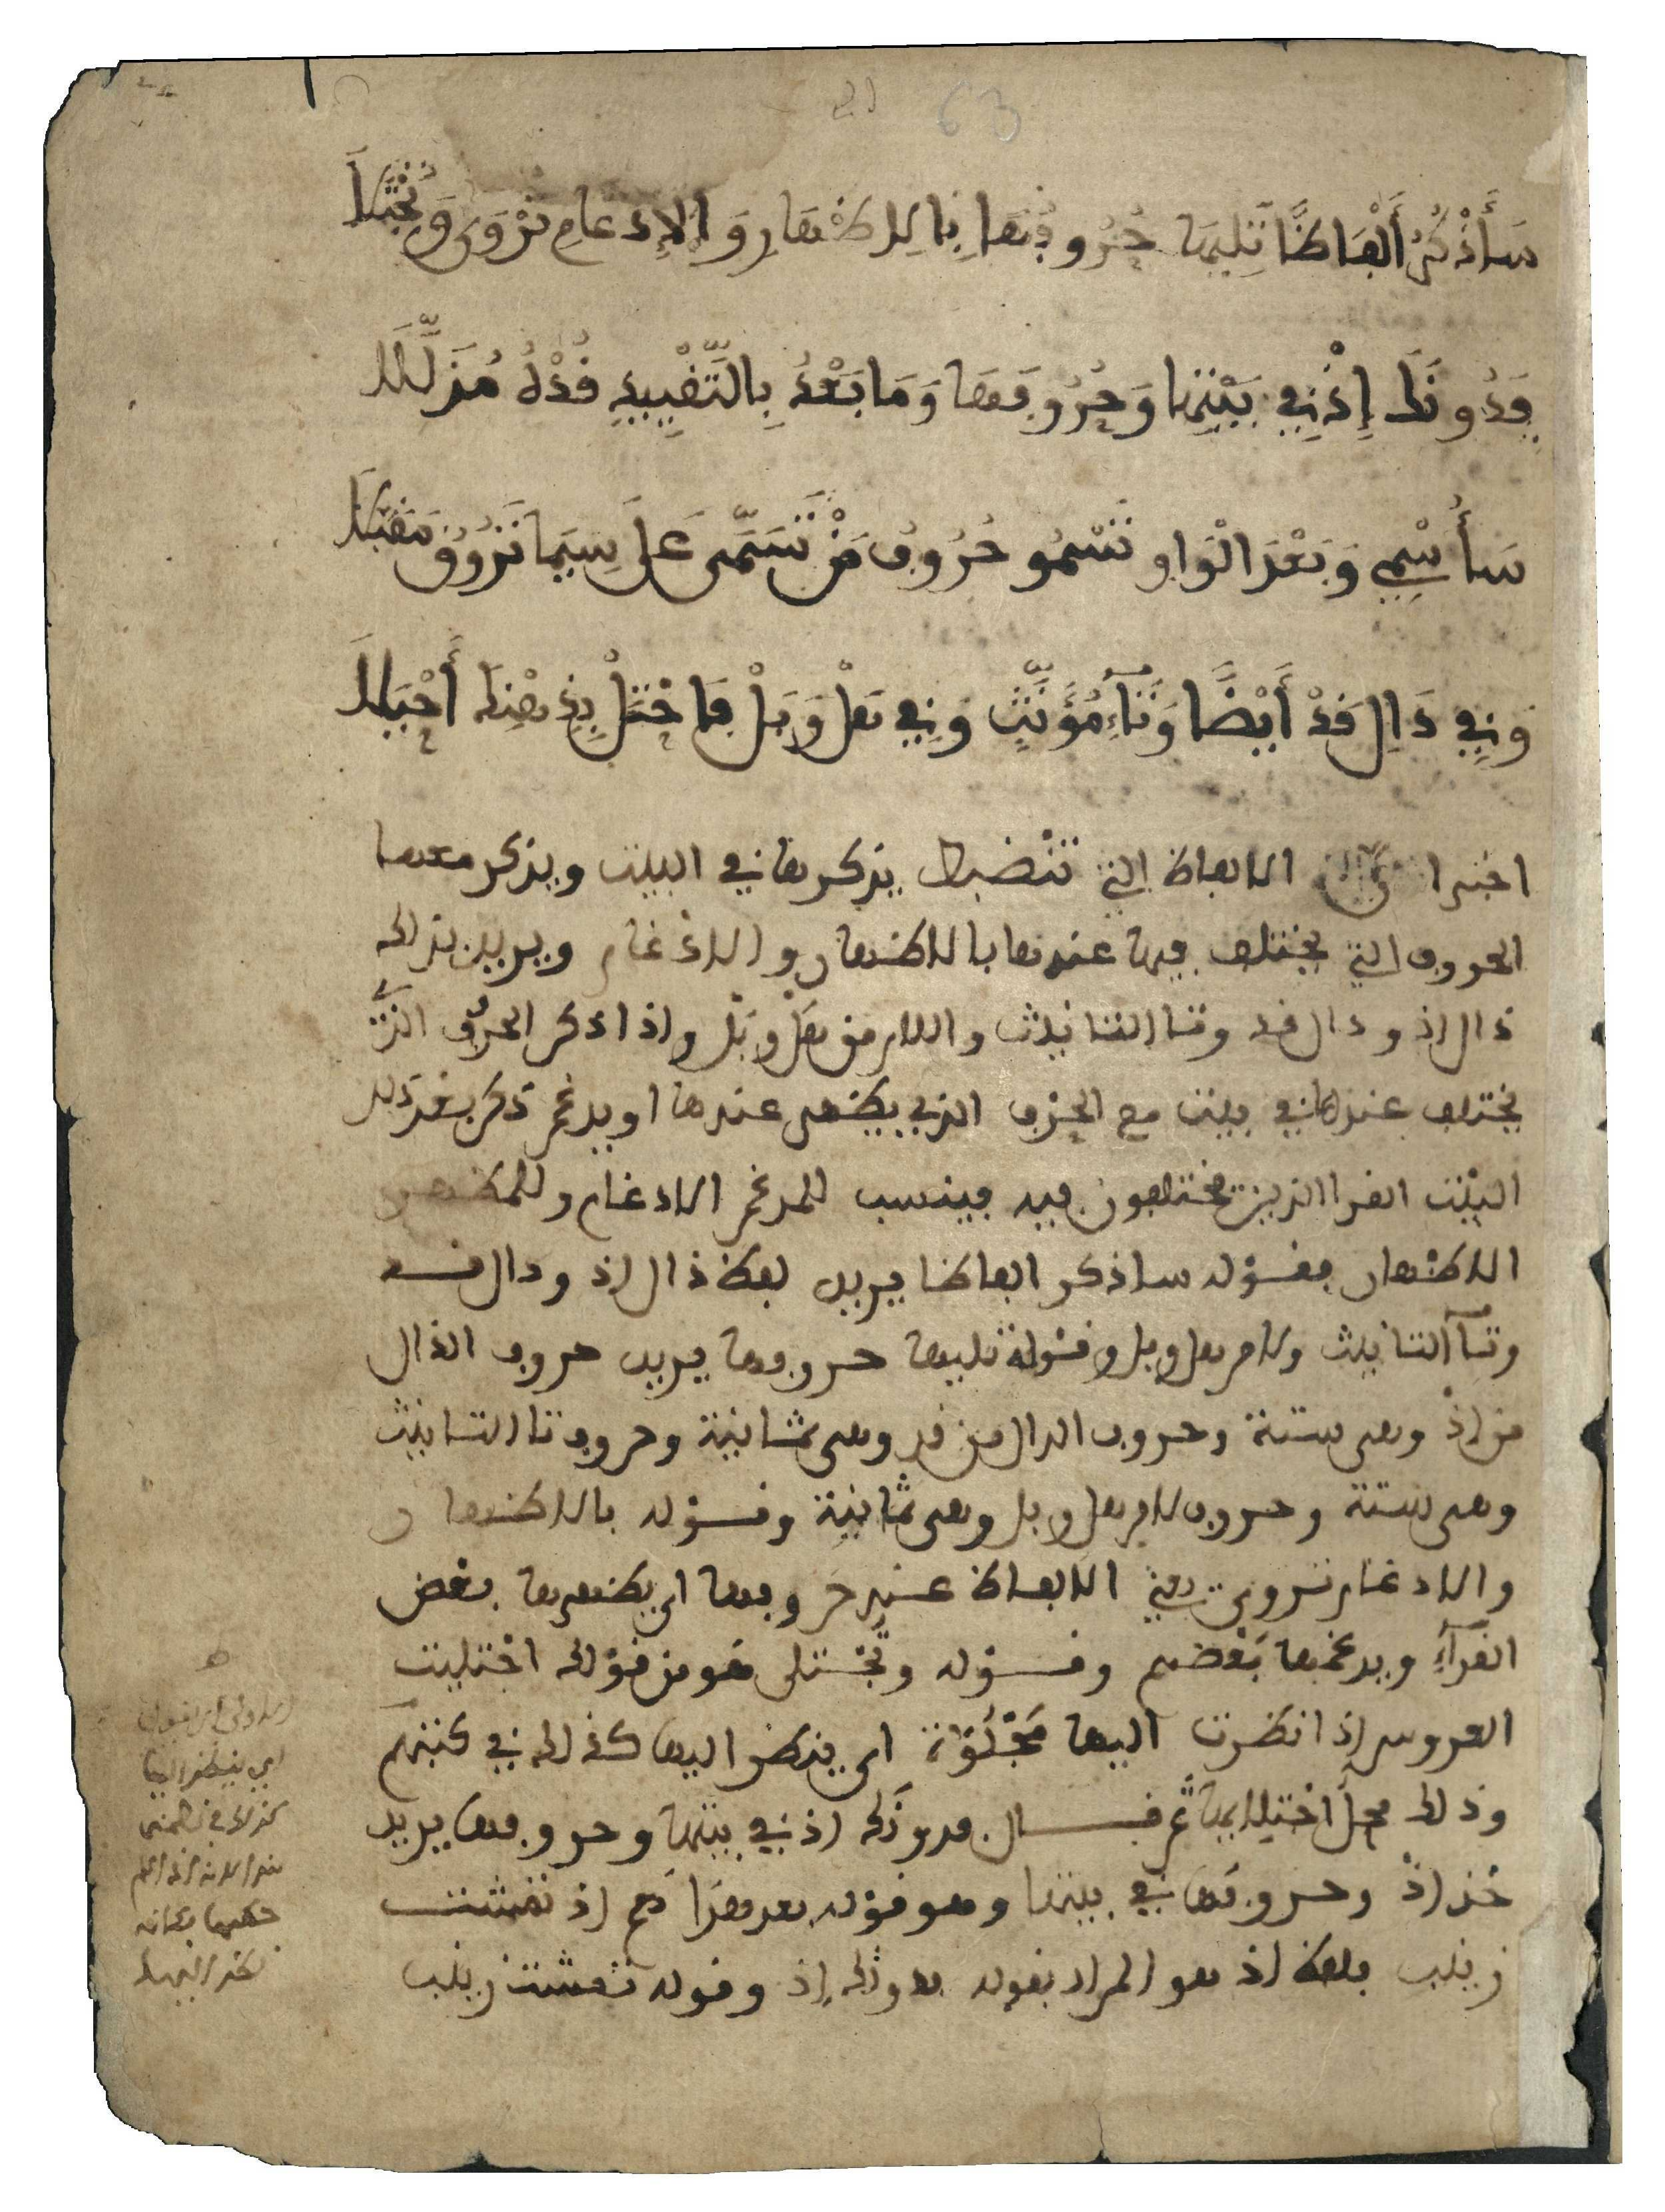 63
سَأَذْكُرُ أَلْفَاظًا تَلِيهَا حُرُوفُهَا بِالِاظْهَارِ وَالإِدْغَامِ تُرْوَى وَتُجْتَلَا
فَدُونَكَ إِذْ فِي بَيْتِهَا وَحُرُوفَهَا وَمَا بَعْدُ بِالتَّقْيِيدِ قُدْهُ مُذَلَّلَا
سَأُسْمِي وَبَعْدَ الْوَاوِ تَسْمُو حُرُوفُ مَنْ تَسَمَّى عَلَى سِيمَا تَرُوقُ مُقَبَّلَا
وَفِي دَالِ قَدْ أَيْضًا وَتَاءِ مُؤَنَّثٍ وَفِي هَلْ وَبَلْ فَاحْتَلْ بِذِهْنِكَ أَحْيَلَا
اخبر ان الالفاظ التي تنضبط يذكرها في البيت ويذكر معها
الحروف التي يختلف فيها عندها بالاظهار والادغام ويريد بذلك
ذال اذ ودال قد وتا التانيث واللام من هل وبل واذا ذكر الحرف الذي
يختلف عندها في بيت مع الحرف الذي يظهر عندها او يدغم ذكر بعد ذلك
البيت القرا الذين يختلفون فيه فينسب للمدغم الادغام وللمظهر
الاظهار فقوله ساذكر الفاظا يريد لفظ ذال اذ ودال قد
وتآ التانيث ولام هل وبل وقوله تليها حروفها يريد حروف الذال
من اذ وهى ستة وحروف الدال من قد وهى ثمانية وحروف تا التانيث
وهى ستة وحروف لام هل وبل وهى ثمانية وقوله بالاظهار
والادغام تروى يعني الالفاظ عند حروفها اى يظهرها بعض
القرآء ويدغمها بعضهم وقوله وتجتلى هو من قولك اجتليت
العروس اذا نظرت اليها مجلوة اى ينظر اليها كذلك في كتبهم
وذلك محل اجتلايها ثم قال فدونك اذ في بيتها وحروفها يريد
خذ اذ وحروفها في بيتها وهو قوله بعد هذا نعم اذ تمشت
زينب فلفظ اذ هو المراد بقوله فدونك اذ وقوله تمشت زينب
اى ينظر اليها